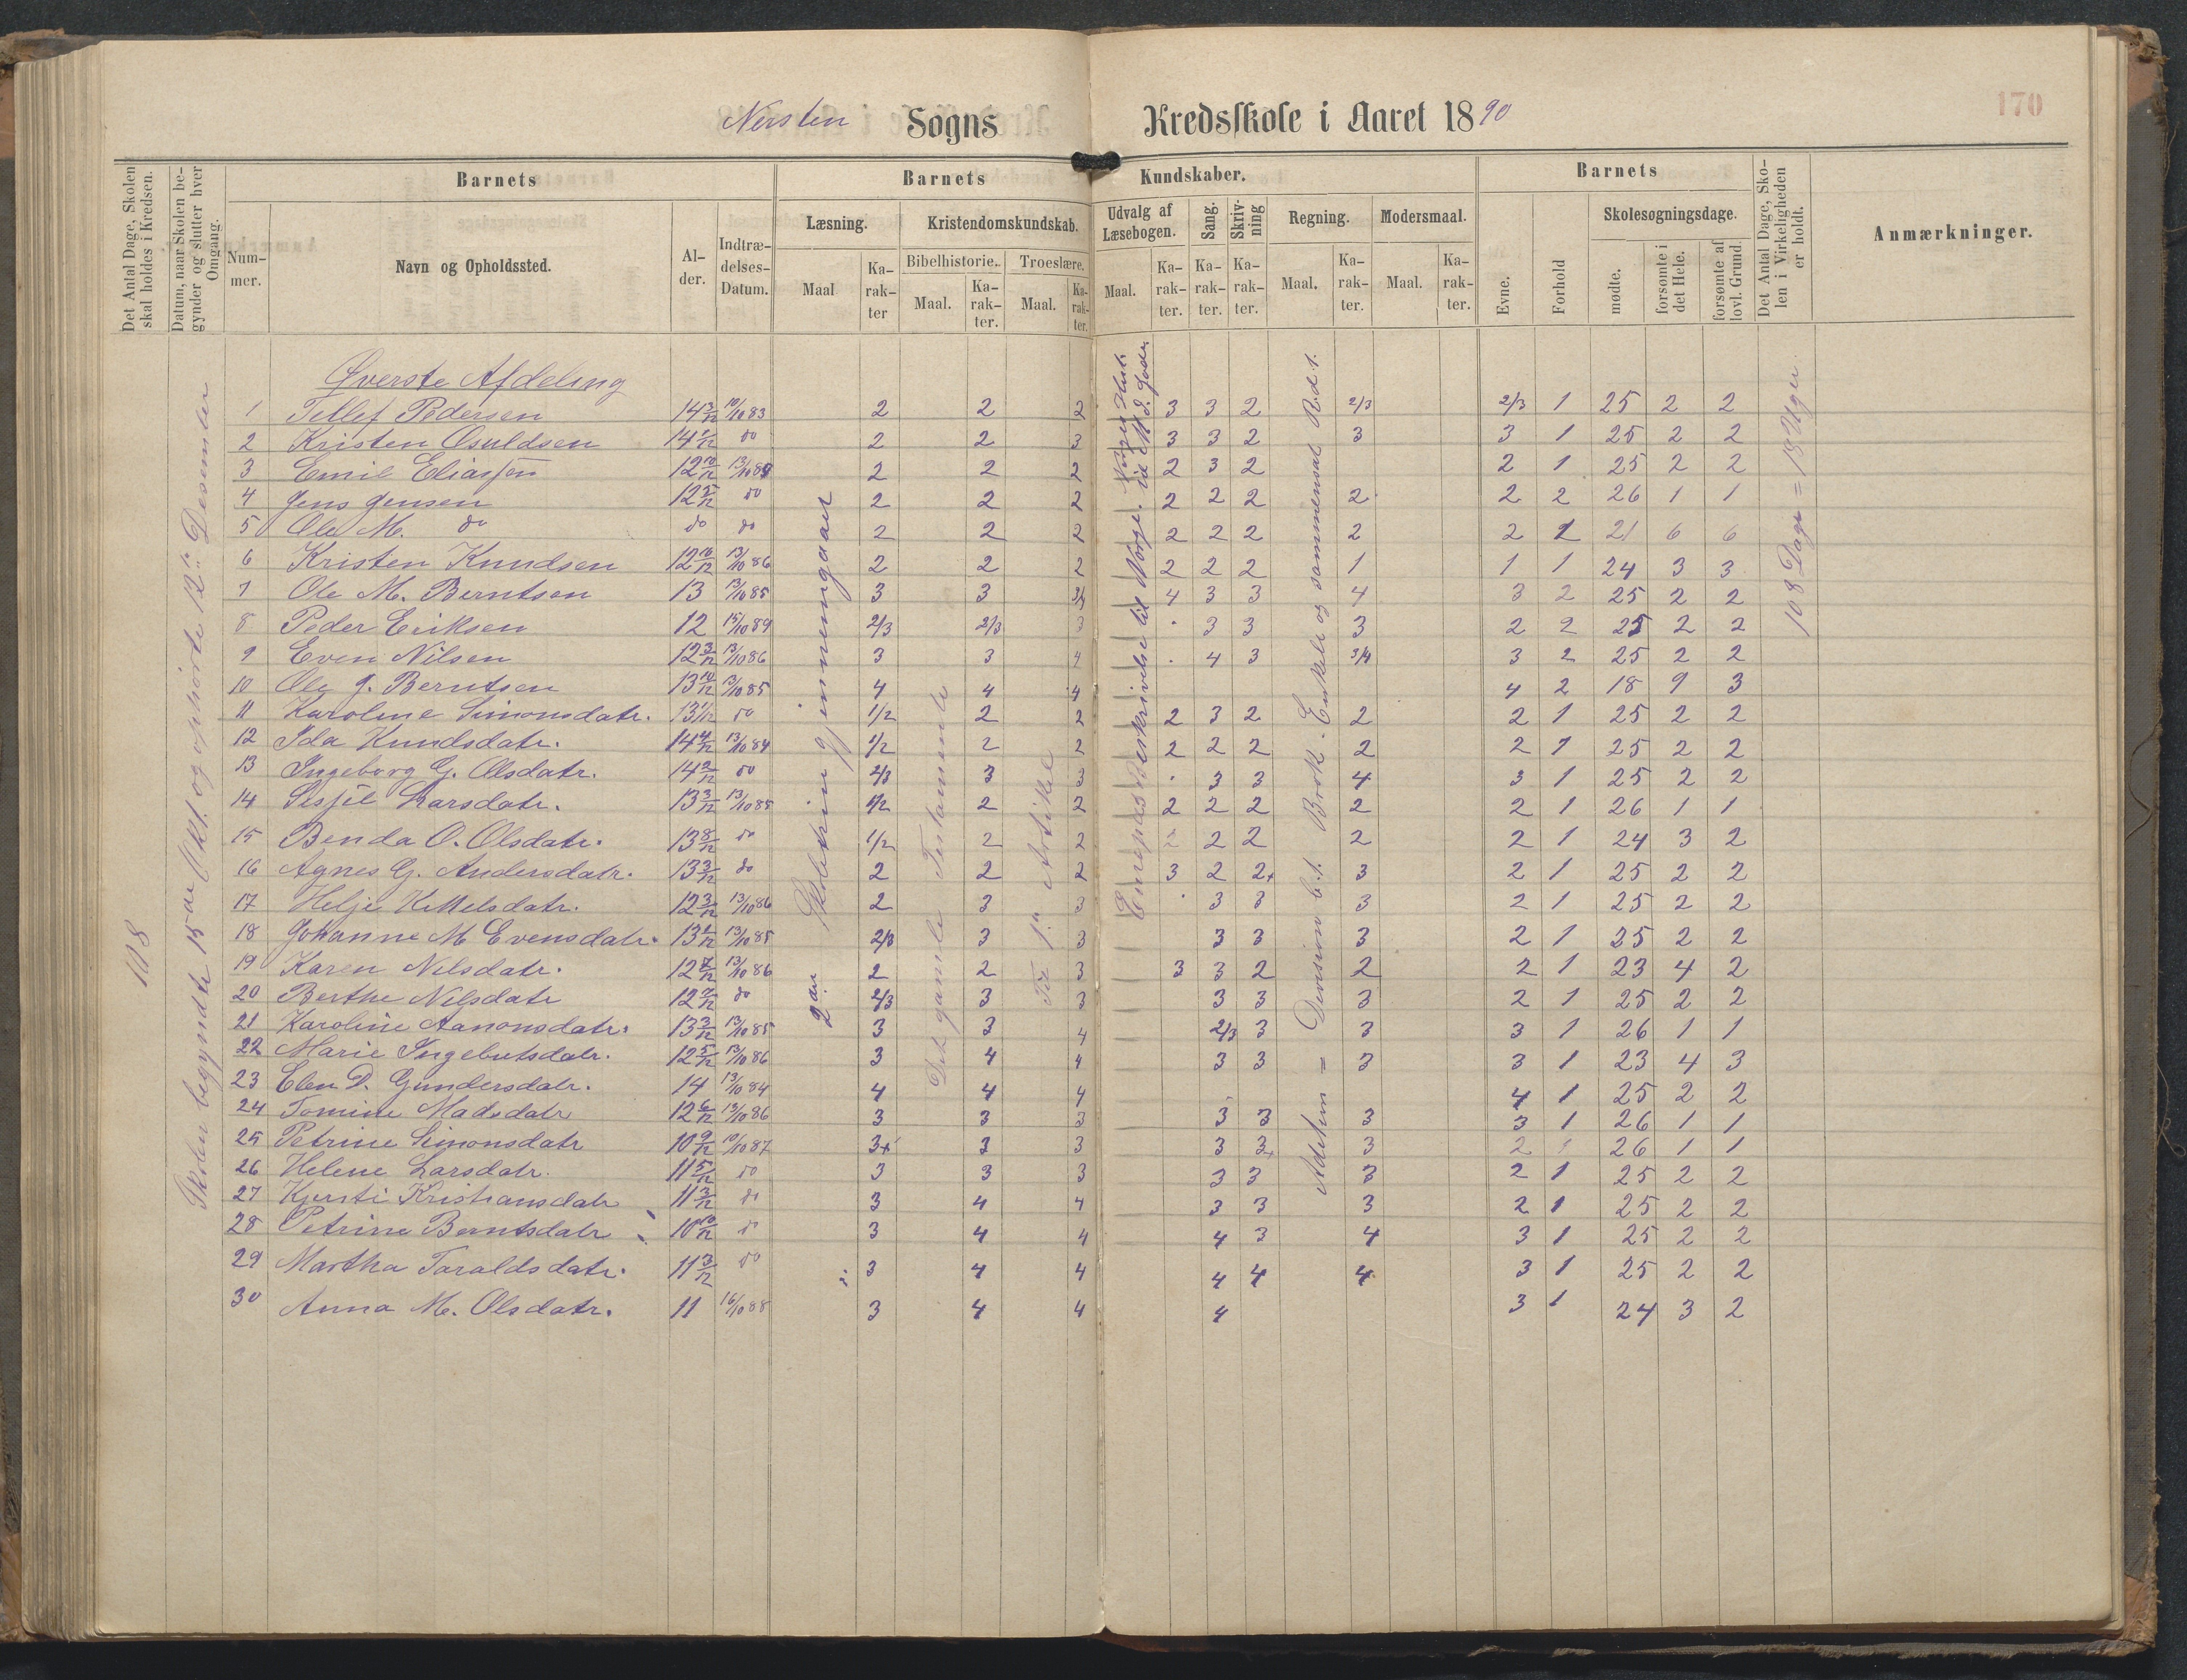 Nersten Sogns Kredsskole i Aaret 1890
170
Det Antal Dage, Skolen skal holdes i Kredsen.
Datum, naar Skolen begynder og slutter hver Omgang.
Barnets
Nummer.
Navn og Opholdssted.
Alder.
Indtrædelses-Datum.
Barnets Kundskaber.
Læsning.
Maal
Karakter
Kristendomskundskab.
Bibelhistorie.
Maal.
Karakter.
Troeslære.
Maal.
Karakter.
Udvalg af Læsebogen.
Maal.
Karakter.
Sang.
Karakter.
Skrivning
Karakter.
Regning.
Maal.
Karakter.
Modersmaal.
Maal.
Karakter.
Barnets
Evne.
Forhold
Skolesøgningsdage.
mødte.
forsømte i det Hele.
forsømte af lovl. Grund.
Det Antal Dage, Skolen i Virkeligheden er holdt.
Anmærkninger.
108
Skolen begyndte 15de Okt. og ophørte 12te Desember
2den Skoletrin gjennemgaaet
Det gamle Testamente
Til 1ste Artikel
Europas Beskrivelse til Norge.
Addition = Division b.1. Brøk. Enkele og sammensat R.d.1.
108 Dage = 18 Uger
Øverste Afdeling
1 Tellef Pedersen 14 3/12 10/10 83 2 2 2 3 3 2 2/3 2/3 1 25 2 2
2 Kristen Osuldsen 14 1/12 do 2 2 3 3 3 2 3 3 1 25 2 2
3 Emil Eliassen 12 10/12 13/10 2 2 2 2 3 2 2 1 25 2 2
4 Jens Jensen 12 5/12 do 2 2 2 2 2 2 2 2 2 26 1 1
5 Ole M. do do do 2 2 2 2 2 2 2 2 21 6 6
6 Kristen Knudsen 12 10/12 13/10 86 2 2 2 2 2 2 1 1 1 24 3 3
7 Ole M. Berntsen 13 13/10 85 3 3 3/4 4 3 3 4 3 2 25 2 2
8 Peder Eriksen 12 15/10 89 2/3 2/3 3 3 3 3 2 2 25 2 2
9 Even Nilsen 12 3/12 13/10 86 3 3 4 4 3 3/4 3 2 25 2 2
10 Ole J. Berntsen 13 10/12 13/10 85 4 4 4 4 2 18 9 3
11 Karoline Simonsdatr. 13 1/12 do 1/2 2 2 2 3 2 2 2 1 25 2 2
12 Ida Knudsdatr. 14 4/12 13/10 84 1/2 2 2 2 2 2 2 2 1 25 2 2
13 Ingeborg G. Olsdatr. 14 2/12 do 2/3 3 3 3 3 4 3 1 25 2 2
14 Sisjel Larsdatr. 13 3/12 13/10 85 1/2 2 2 2 2 2 2 2 1 26 1 1
15 Benda O. Olsdatr. 13 8/12 do 1/2 2 2 2 2 2 2 2 1 24 3 2
16 Agnes G. Andersdatr. 13 3/12 do 2 2 2 3 2 2+ 3 2 1 25 2 2
17 Helje Kittelsdatr. 12 3/12 13/10 86 2 3 3 3 3 3 2 1 25 2 2
18 Johanne M Evensdatr. 13 2/12 13/10 85 2/3 3 3 3 3 3 2 1 25 2 2
19 Karen Nilsdatr. 12 7/12 13/10 86 2 2 3 3 3 2 2 2 1 23 4 2
20 Berthe Nilsdatr 12 2/12 do 2/3 3 3 3 3 3 2 1 25 2 2
21 Karoline Aanonsdatr. 13 3/12 13/10 85 3 3 4 2/3 3 3 3 1 26 1 1
22 Marie Ingebutsdatr. 12 5/12 13/10 86 3 4 4 3 3 3 3 1 23 4 3
23 Elen D. Gundersdatr. 14 13/10 84 4 4 4 4 1 25 2 2
24 Tomine Madsdatr 12 6/12 13/10 86 3 3 3 3 3 3 3 1 26 1 1
25 Petrine Simonsdatr 10 9/12 10/10 87 3+ 3 3 3 3+ 3 2 1 26 1 1
26 Helene Larsdatr. 11 5/12 do 3 3 3 3 3 3 2 1 25 2 2
27 Kjersti Kristiansdatr 11 3/12 do 3 4 4 3 3 3 2 1 25 2 2
28 Petrine Berntsdatr 10 10/12 do 3 4 4 4 3 4 3 1 25 2 2
29 Martha Taraldsdatr. 11 3/12 do 3 4 4 4 4 4 3 1 25 2 2
30 Anna M. Olsdatr. 11 16/10 88 3 4 4 4 3 1 24 3 2